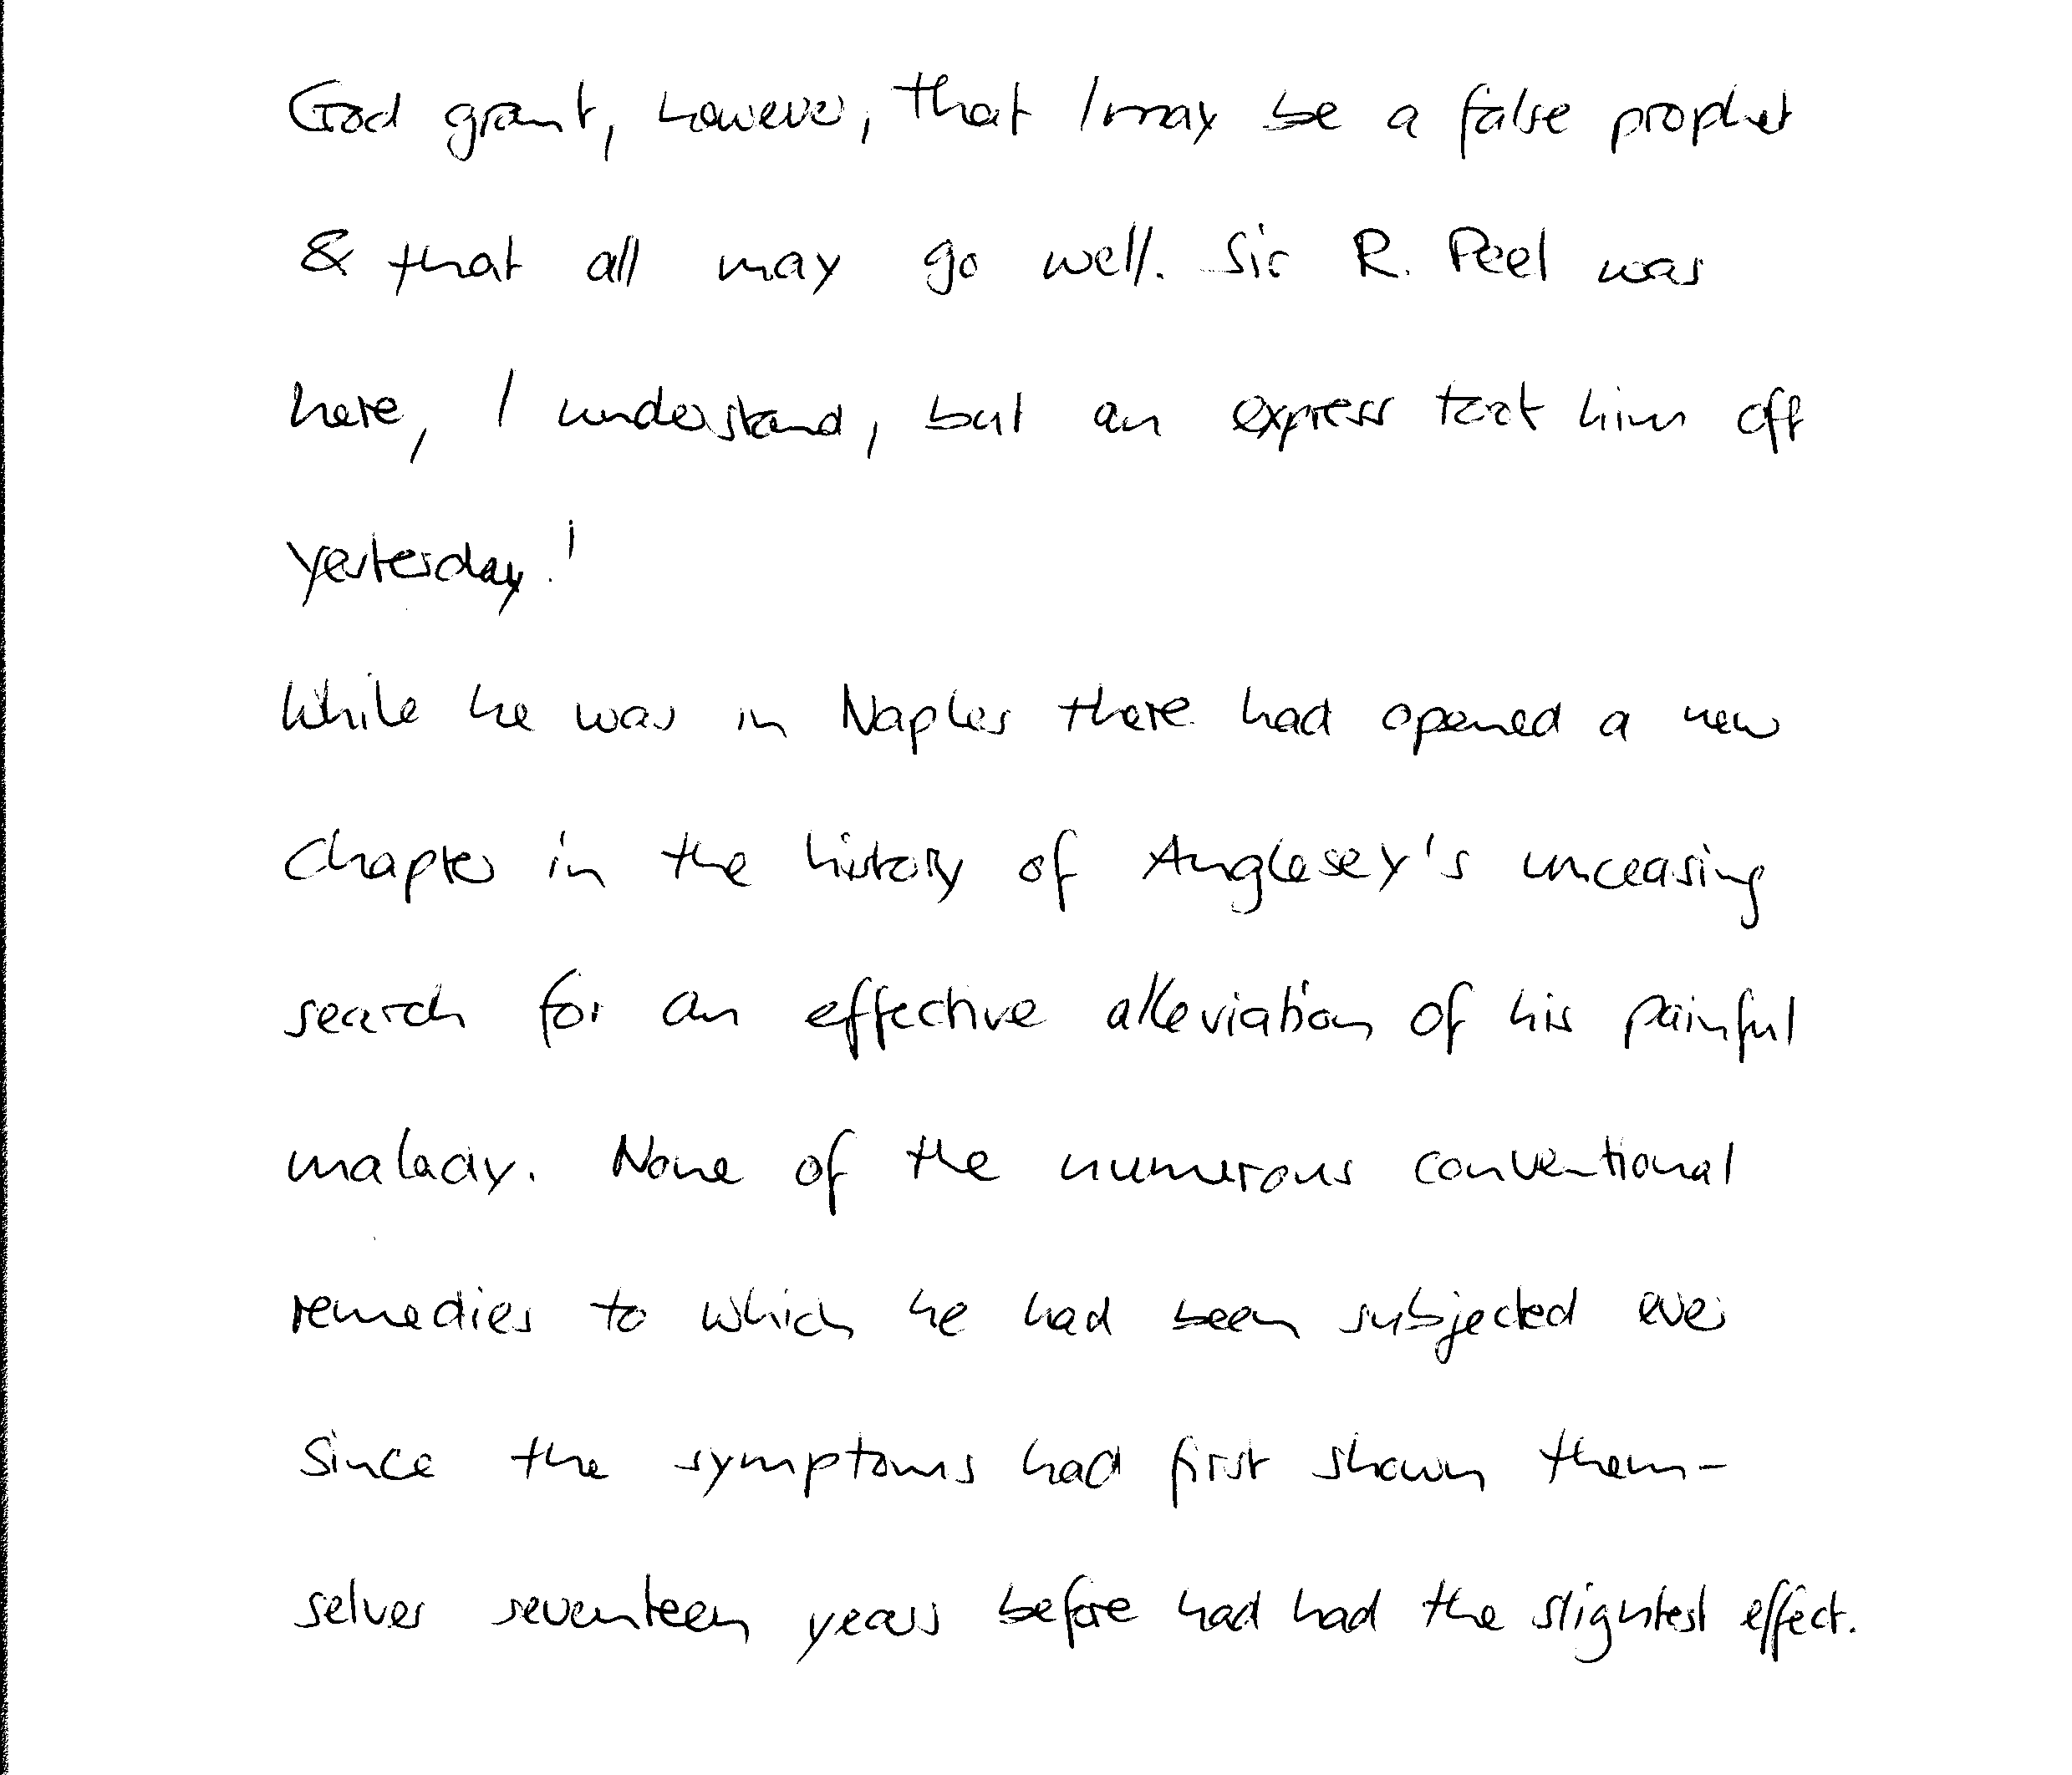 God grant, however, that I may be a false prophet
& that all may go well. Sir R. Peel was
here, I understand, but an express took him off
yesterday.'
While he was in Naples there had opened a new
chapter in the history of Anglesey's unceasing
search for an effective alleviation of his painful
malady. None of the numerous conventional
remedies to which he had been subjected ever
since the symptoms had first shown them-
selves seventeen years before had had the slightest effect.